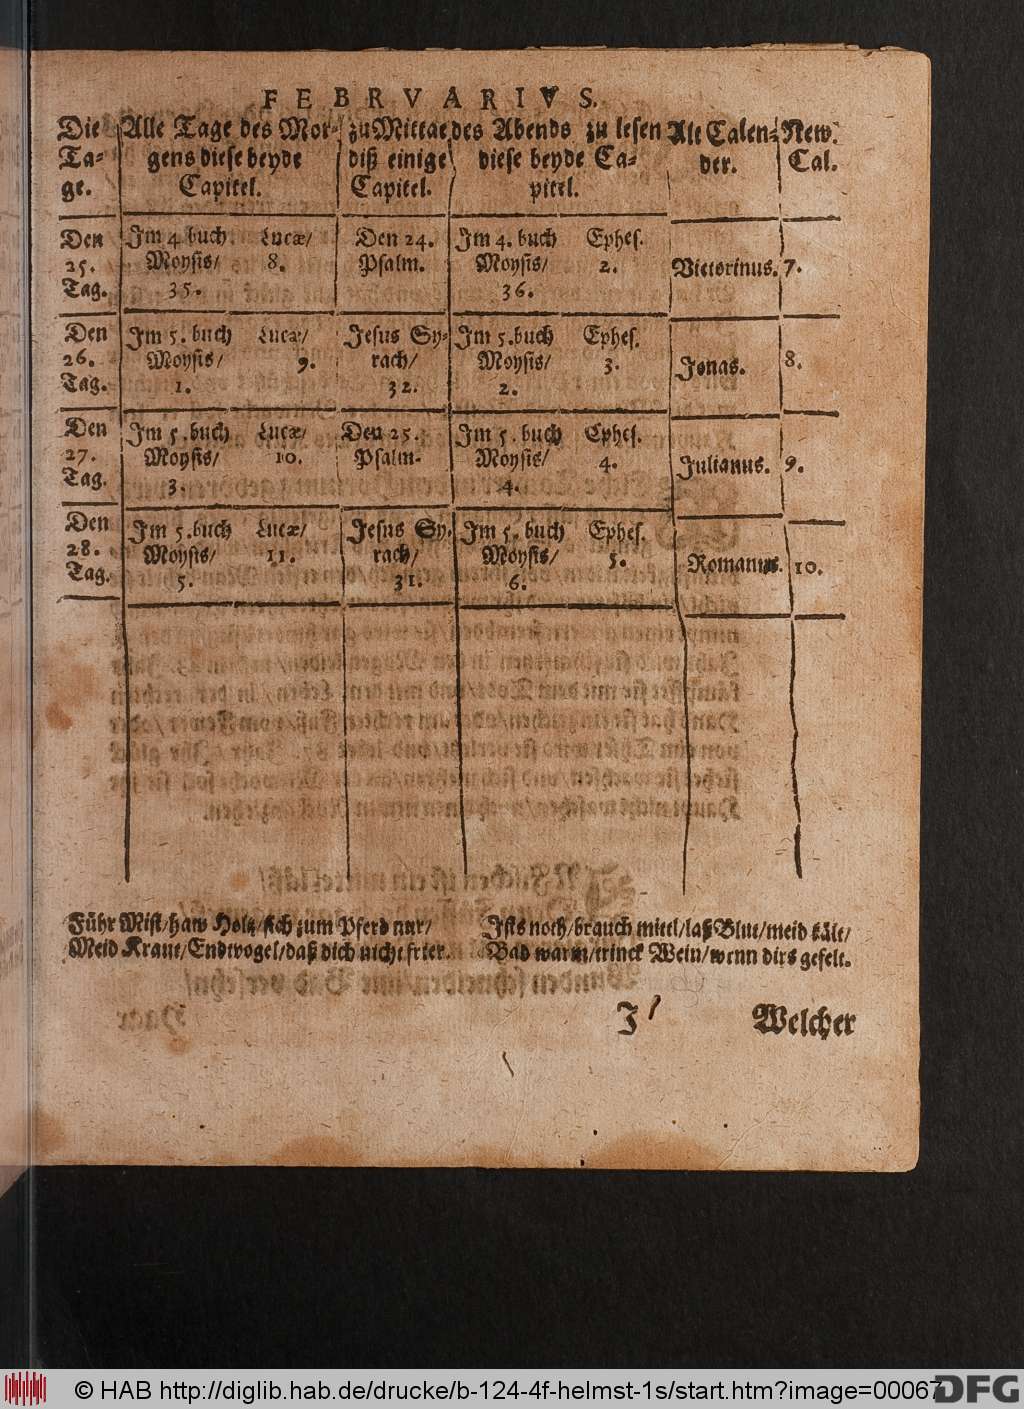 FEBRVARIVS.
Die Alle Tage des Mor- zu Mittag des Abends zu lesen Alt Calen- New.
Ta- gens diese beyde diß einige diese beyde Ca- der. Cal.
ge. Capitel. Capitel. pitel.
Den Im 4 buch Lucæ/ Den 24. Im 4. buch Ephes.
25. Moysis/ 8. Psalm. Moysis/ 2. Victorinus. 7.
Tag. 35. 36.
Den Im 5. buch Lucæ/ Jesus Sy- Im 5. buch Ephes.
26. Moysis/ 9. rach/ Moysis/ 3. Jonas. 8.
Tag. 1. 32. 2.
Den Im 5. buch Lucæ/ Den 25. Im 5. buch Ephes.
27. Moysis/ 10. Psalm. Moysis/ 4. Julianus. 9.
Tag. 3. 4.
Den Im 5. buch Lucæ/ Jesus Sy- Im 5. buch Ephes.
28. Moysis/ 11. rach/ Moysis/ 5. Romanus. 10.
Tag. 5. 31. 6.
Führ Mist/haw Holz/sich zum Pferd nur/
Meid Kraut/Endtvogel/daß dich nicht frier.
Ists noth/brauch mittl/laß Blut/meid kält/
Bad warm/trinck Wein/wenn dirs gefelt.
J
Welcher
© HAB http://diglib.hab.de/drucke/b-124-4f-helmst-1s/start.htm?image=00067
DFG